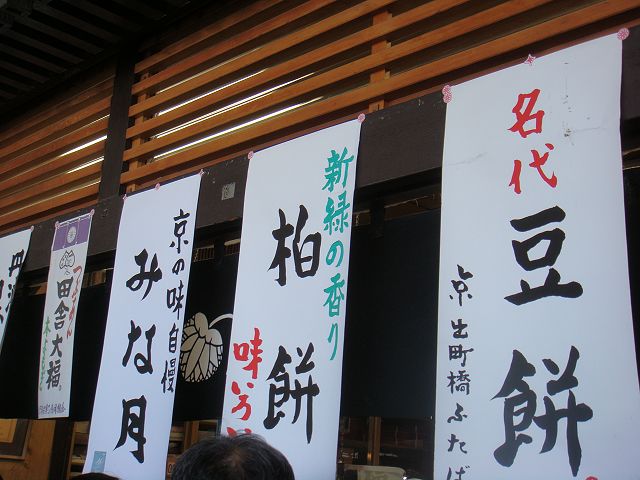 名代
豆餅
京出町橋ふたば
新緑の香り
柏餅
味いろ
京の味自慢
みな月
つぶあん
田舎大福
丹